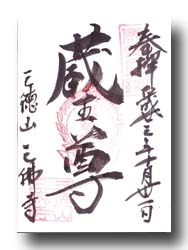 奉拝 平成廿三年十月廿一日
蔵王尊
三徳山 三佛寺